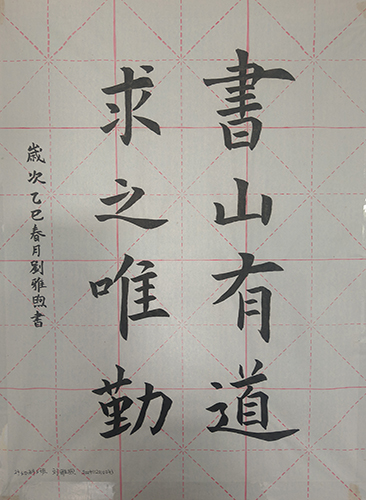 書山有道
求之唯勤
歲次乙巳春月劉雅煦書